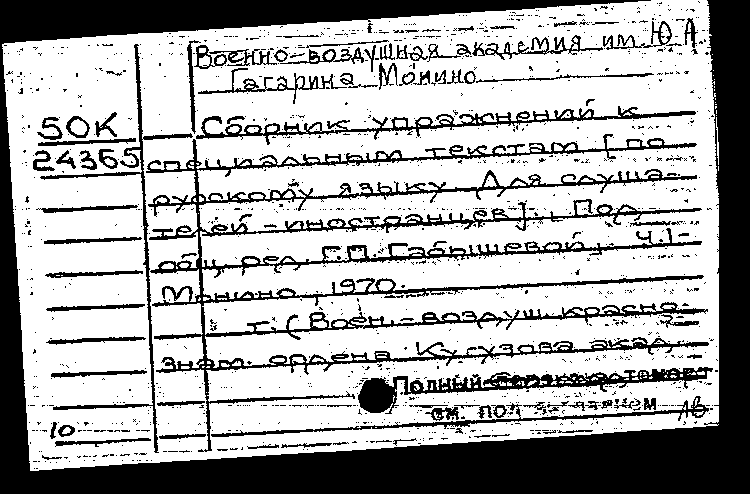 Военно-воздушная академия им. Ю А
Гагарина Монино
50К
24365
Сборник упражнений к
специальным текстам [по
русскому языку Для слуша-
телей-иностранцев]., Под
общ. ред. Г.П. Габышевой, Ч.1-
Монино, 1970.
т. (Воен.-воздуш. красно-
знам. ордена Кутузова акад.
Полный
см. под
10
АВ